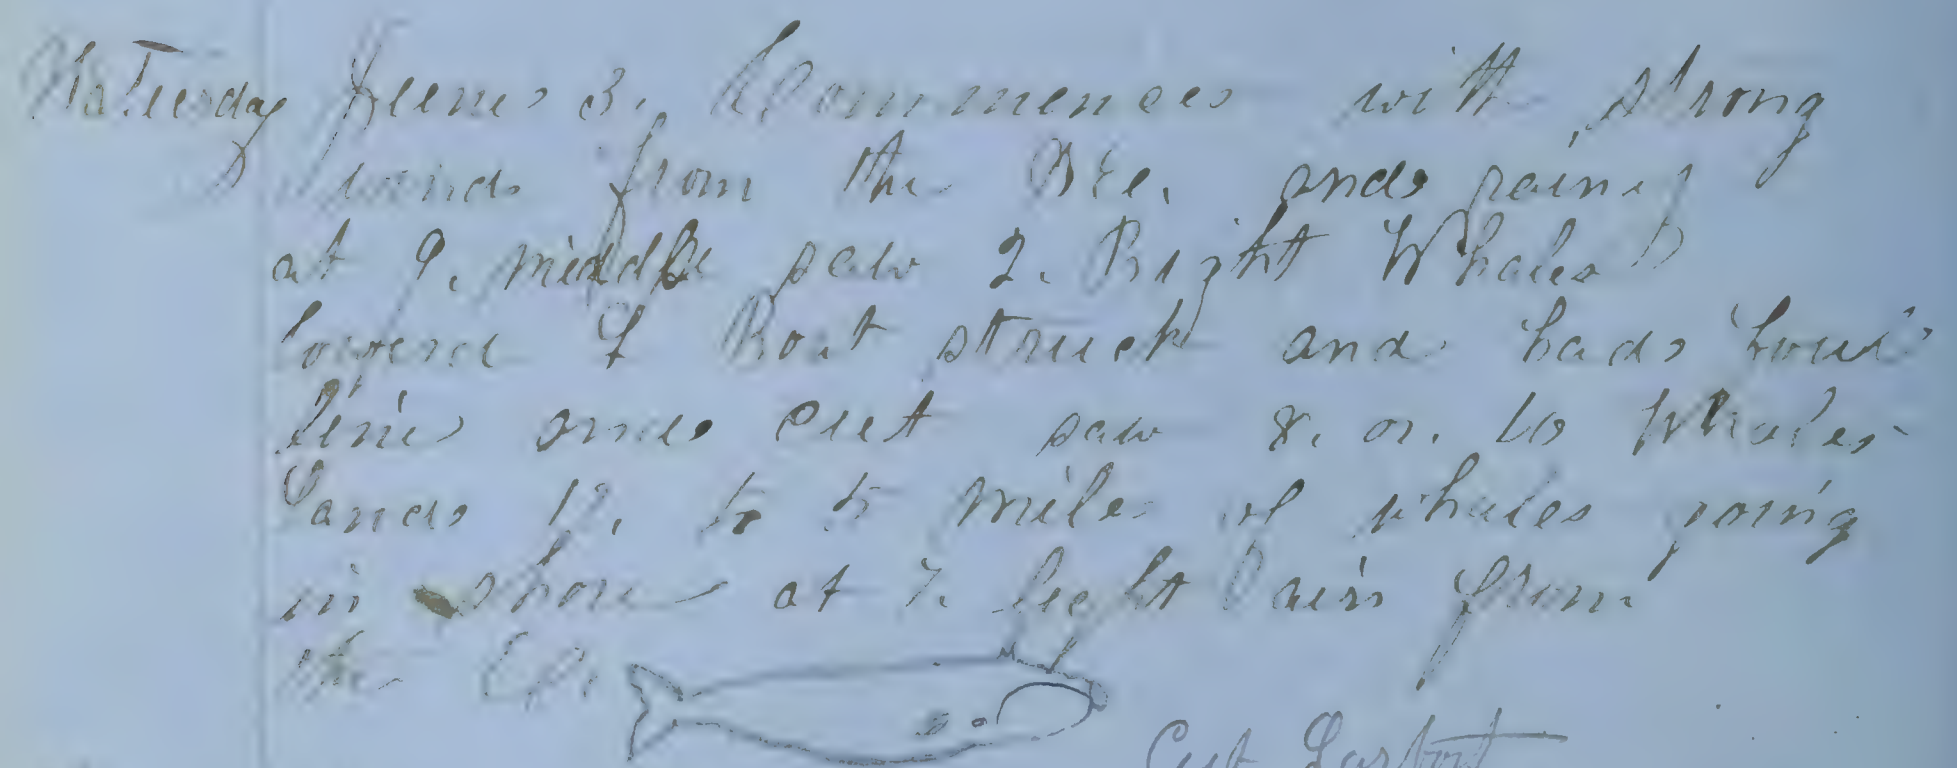 Saturday June 3. Commences with strong
winds from the and rain
at 9. middle saw 2. Right Whales
lowerd Boat struck and had
line and cut saw 8. or. 10 Whales
and to 5 mile of whales going
in shore at 7. light from
the
Cut